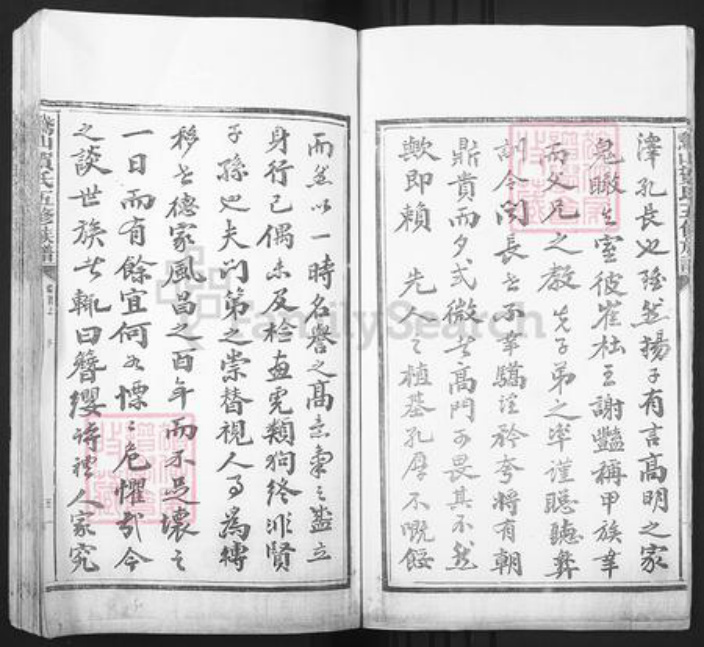 澤孔長也雖然揚子有言高明之家
鬼瞰其室彼崔杜王謝豔稱甲族幸
而父兄之教先子弟之率謹聰聽彝
訓令聞長世不幸驕淫矜夸將有朝
鼎貴而夕式微者高門可畏其不然
歟即賴先人之植基孔厚不慨餒
而然以一時名譽之高意氣之盛立
身行己偶未及檢畫虎類狗終非賢
子孫也夫門第之崇替視人事為轉
移世德家風昌之百年而不足壞之
一日而有餘宜何如慄慄危懼哉今
之談世族者輒曰簪纓詩禮人家究
氏五修族譜
FamilySearch